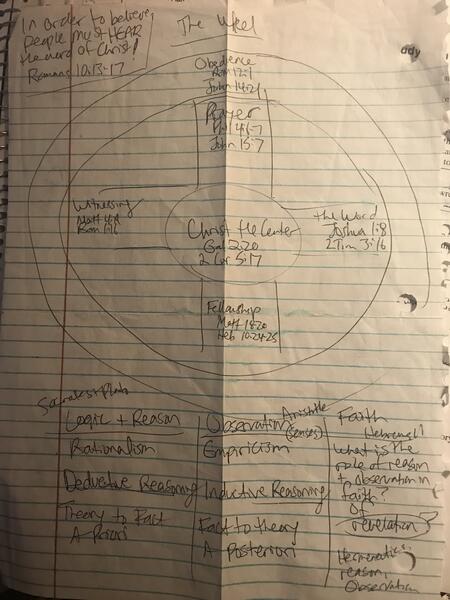 The Wheel
In order to believe,
people must HEAR
the word of Christ!
Romans 10:13-17
Obedience
Rom 12:1
John 14:21
Prayer
Phil 4:6-7
John 15:7
Witnessing
Matt 4:19
Rom 1:16
Christ the Center
Gal 2:20
2 Cor 5:17
The Word
Joshua 1:8
2 Tim 3:16
Fellowship
Matt 18:20
Heb 10:24-25
ady
Socrates + Plato
Logic + Reason
Rationalism
Deductive Reasoning
Theory to Fact
A Priori
Aristotle
Observation (senses)
Empiricism
Inductive Reasoning
Fact to theory
A Posteriori
Faith
Hebrews 11
What is the
role of reason
to observation in
faith?
Of
revelation?
Hermeneutics:
reason,
Observation